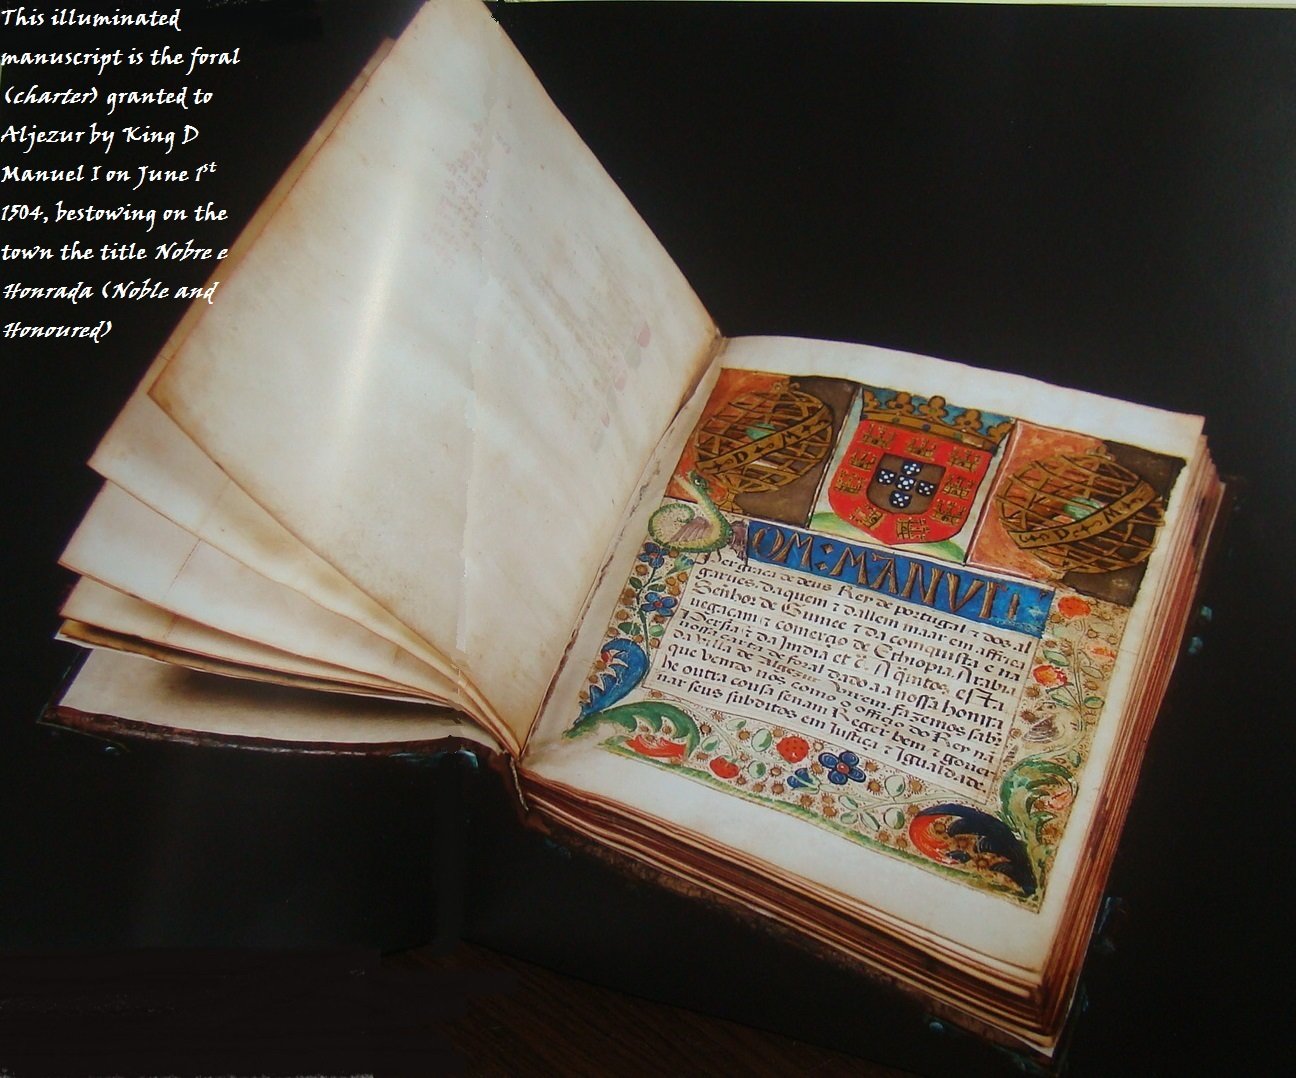 This illuminated
manuscript is the foral
(charter) granted to
Aljezur by King D
Manuel I on June 1st
1504, bestowing on the
town the title Nobre e
Honrada (Noble and
Honoured)
D M
D M
OM: MANVEL
per graca de deus Rey de portugal ⁊ dos al
garues. daquem ⁊ dallem maar em affrica
Señhor de Guinee ⁊ da comquista ⁊ na
uegacam ⁊ comercio de Ethiopia. Arabia
Persia ⁊ da Jmdia et c̃. A quãtos esta
nossa carta de foral dado aa nossa homrra
da villa de Algezur Virem. fazemos sabr̃
que Vemdo nos como o officio do Rey nã
he outra cousa senam Reger bem ⁊ gouer
nar seus subditos em Justiça ⁊ Igualdade.